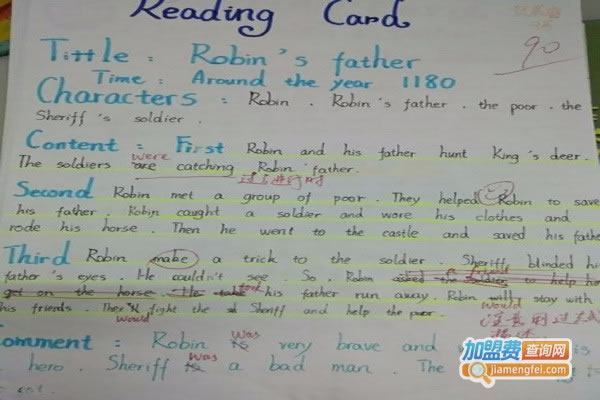 Reading Card
90
Tittle : Robin's father
Time : Around the year 1180
Characters : Robin . Robin's father . the poor . the
Sheriff's soldier .
Content : First Robin and his father hunt King's deer.
were
The soldiers are catching Robin father.
过去进行时
Second Robin met a group of poor . They helped Robin to save
his father . Robin caught a soldier and wore his clothes and
rode his horse . Then he went to the castle and saved his fathe
Third Robin make a trick to the soldier . Sheriff blinded his
father's eyes . He couldn't see . So , Robin asked the soldier to help him
get on the horse . He take took his father run away . Robin will stay with
would
his friends . They'll fight the Sheriff and help the poor .
would
注意用过去式
Comment : Robin is was very brave and is
hero . Sheriff is was a bad man . The
加盟费查询网
jiamengfei.com